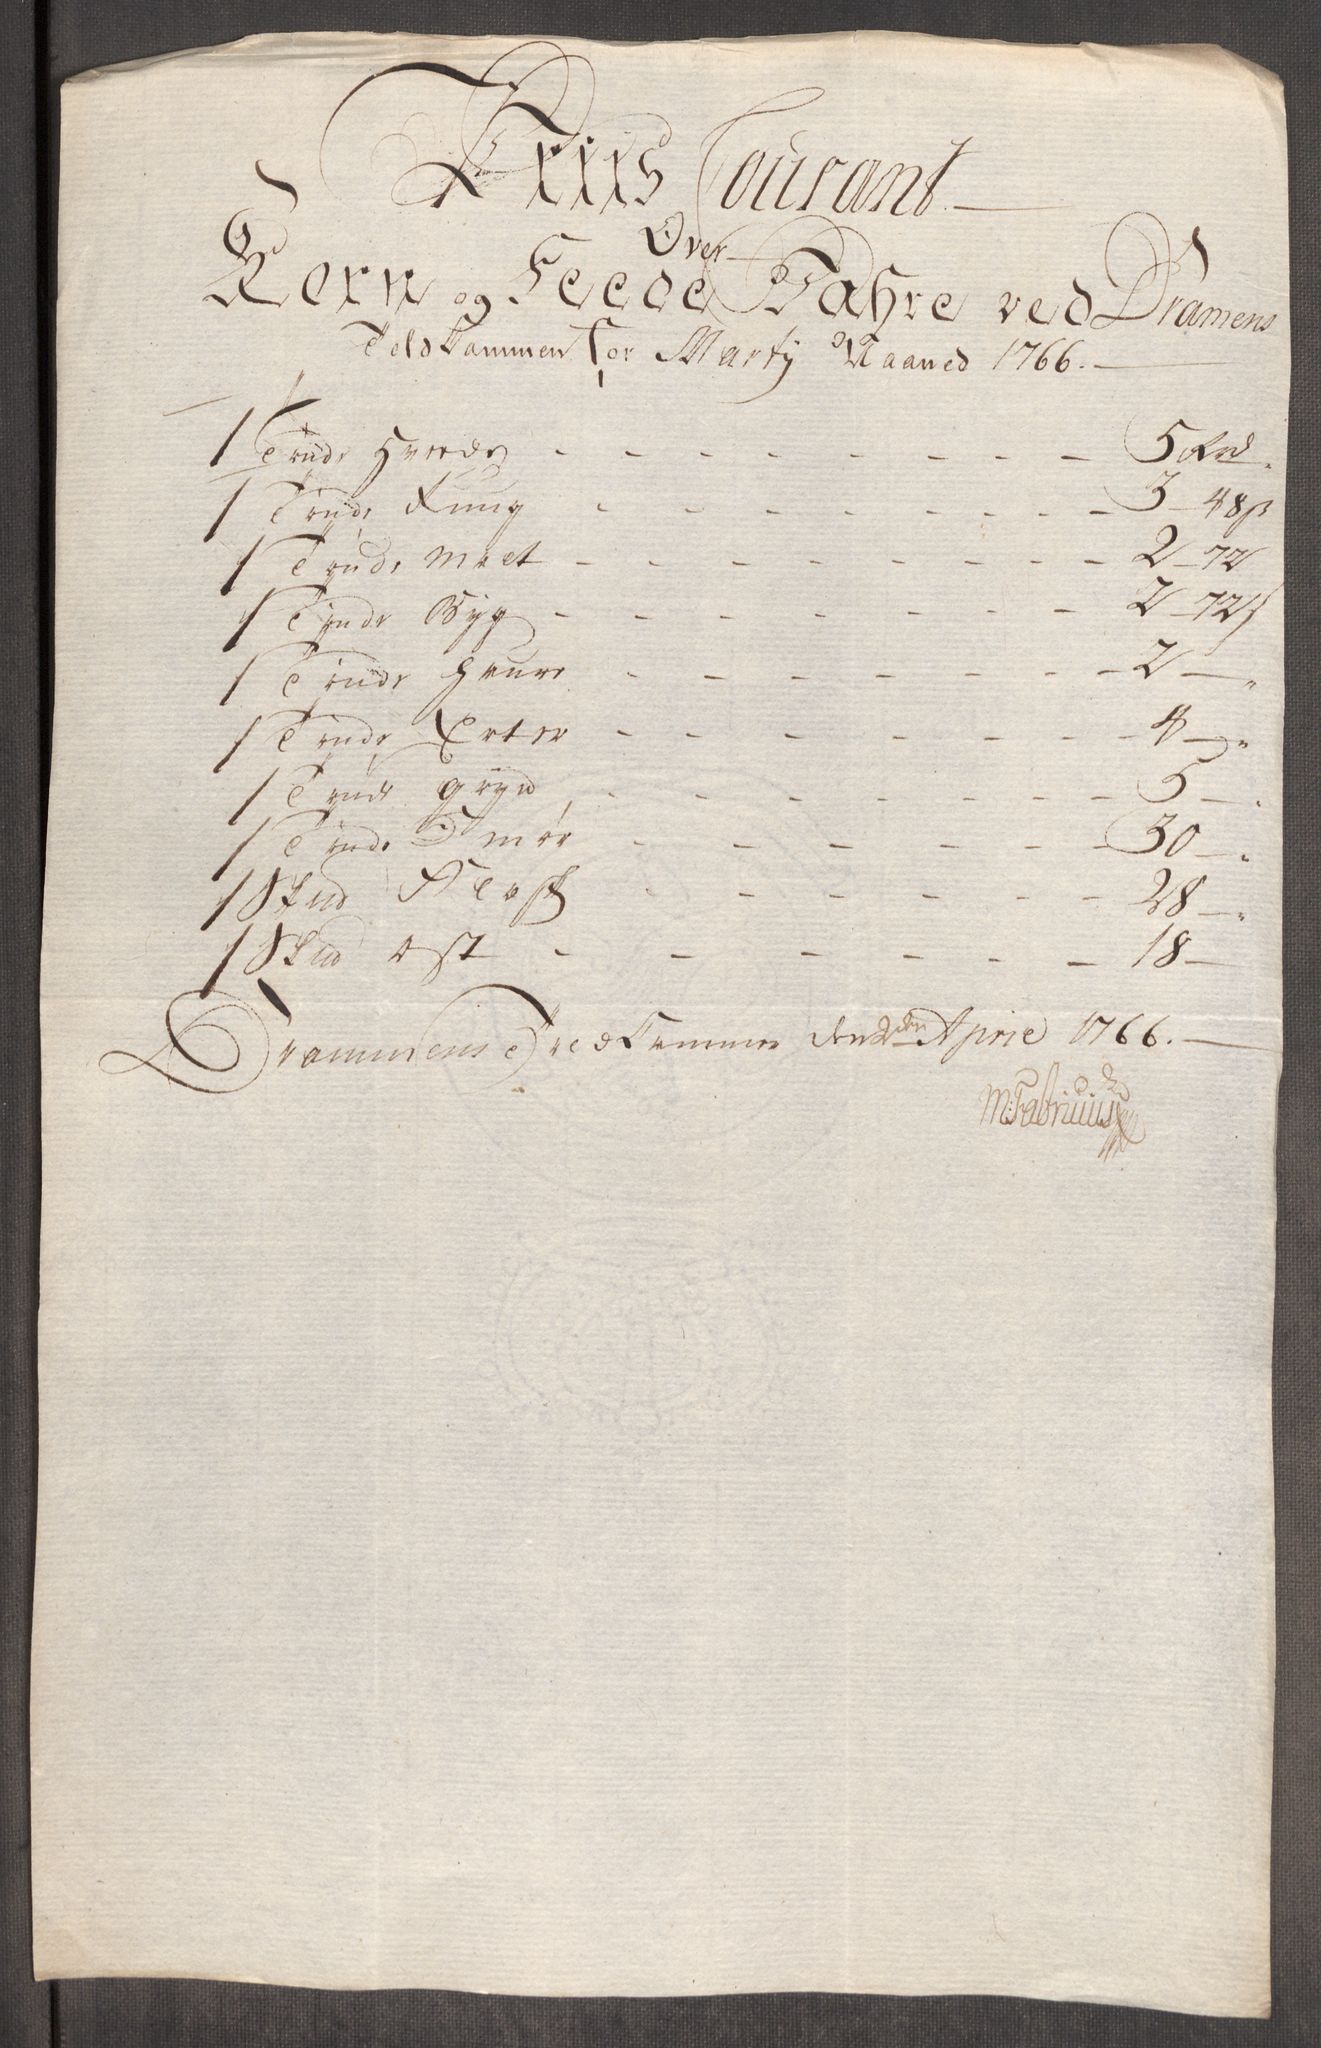 Priis Courant
Over
Korn og Feede Vahre ved Dramens
Told Cammer for Martij Maaned 1766.
1 Tynde Hvede - - - - - - - - 5 Rd "
1 Tynde Rug - - - - - - - - 3 - 48 ß
1 Tynde Malt - - - - - - - - 2 - 72
1 Tynde Byg - - - - - - - - 2 - 72 ß
1 Tynde Haure - - - - - - - 2 - "
1 Tynde Erter - - - - - - - - 4 - "
1 Tynde gryn - - - - - - - - 5 - "
1 Tynde Smør - - - - - - - 30 - "
1 Skud Flesk - - - - - - 28 - "
1 Skud ost - - - - - - 18 -
Drammens Told Cammer den 2den April 1766.
M: Fabricius